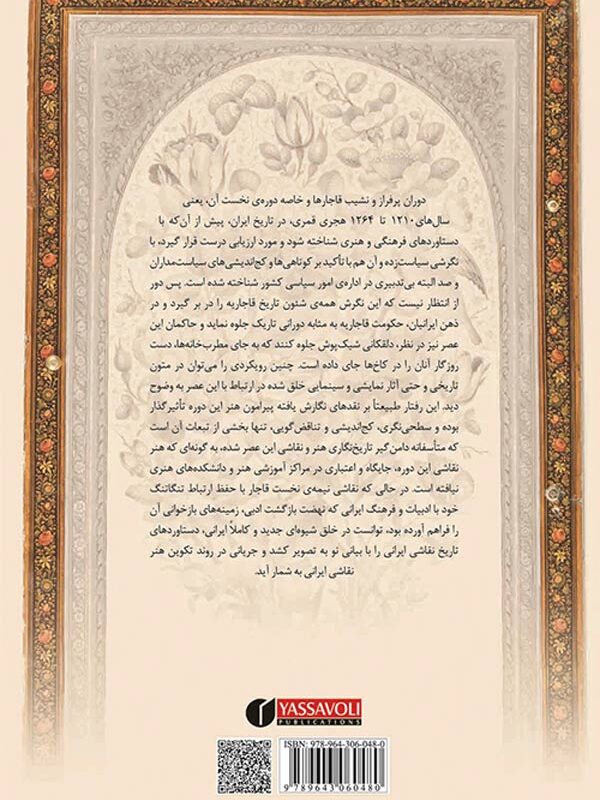 دوران پرفراز و نشیب قاجارها و خاصه دوره‌ی نخست آن، یعنی
سال‌های ۱۲۱۰ تا ۱۲۶۴ هجری قمری، در تاریخ ایران، پیش از آن‌که با
دستاوردهای فرهنگی و هنری شناخته شود و مورد ارزیابی درست قرار گیرد، با
نگرشی سیاست‌زده و آن هم با تأکید بر کوتاهی‌ها و کج‌اندیشی‌های سیاست‌مداران
و صد البته بی‌تدبیری در اداره‌ی امور سیاسی کشور شناخته شده است. پس دور
از انتظار نیست که این نگرش همه‌ی شئون تاریخ قاجاریه را در بر گیرد و در
ذهن ایرانیان، حکومت قاجاریه به مثابه دورانی تاریک جلوه نماید و حاکمان این
عصر نیز در نظر، دلقکانی شیک‌پوش جلوه کنند که به جای مطرب‌خانه‌ها، دست
روزگار آنان را در کاخ‌ها جای داده است. چنین رویکردی را می‌توان در متون
تاریخی و حتی آثار نمایشی و سینمایی خلق شده در ارتباط با این عصر به وضوح
دید. این رفتار طبیعتاً بر نقدهای نگارش یافته پیرامون هنر این دوره تأثیرگذار
بوده و سطحی‌نگری، کج‌اندیشی و تناقض‌گویی، تنها بخشی از تبعات آن است
که متأسفانه دامن‌گیر تاریخ‌نگاری هنر و نقاشی این عصر شده، به گونه‌ای که هنر
نقاشی این دوره، جایگاه و اعتباری در مراکز آموزشی هنر و دانشکده‌های هنری
نیافته است. در حالی که نقاشی نیمه‌ی نخست قاجار با حفظ ارتباط تنگاتنگ
خود با ادبیات و فرهنگ ایرانی که نهضت بازگشت ادبی، زمینه‌های بازخوانی آن
را فراهم آورده بود، توانست در خلق شیوه‌ای جدید و کاملاً ایرانی، دستاوردهای
تاریخ نقاشی ایرانی را با بیانی نو به تصویر کشد و جریانی در روند تکوین هنر
نقاشی ایرانی به شمار آید.
YASSAVOLI
PUBLICATIONS
ISBN: 978-964-306-048-0
9 789643 060480